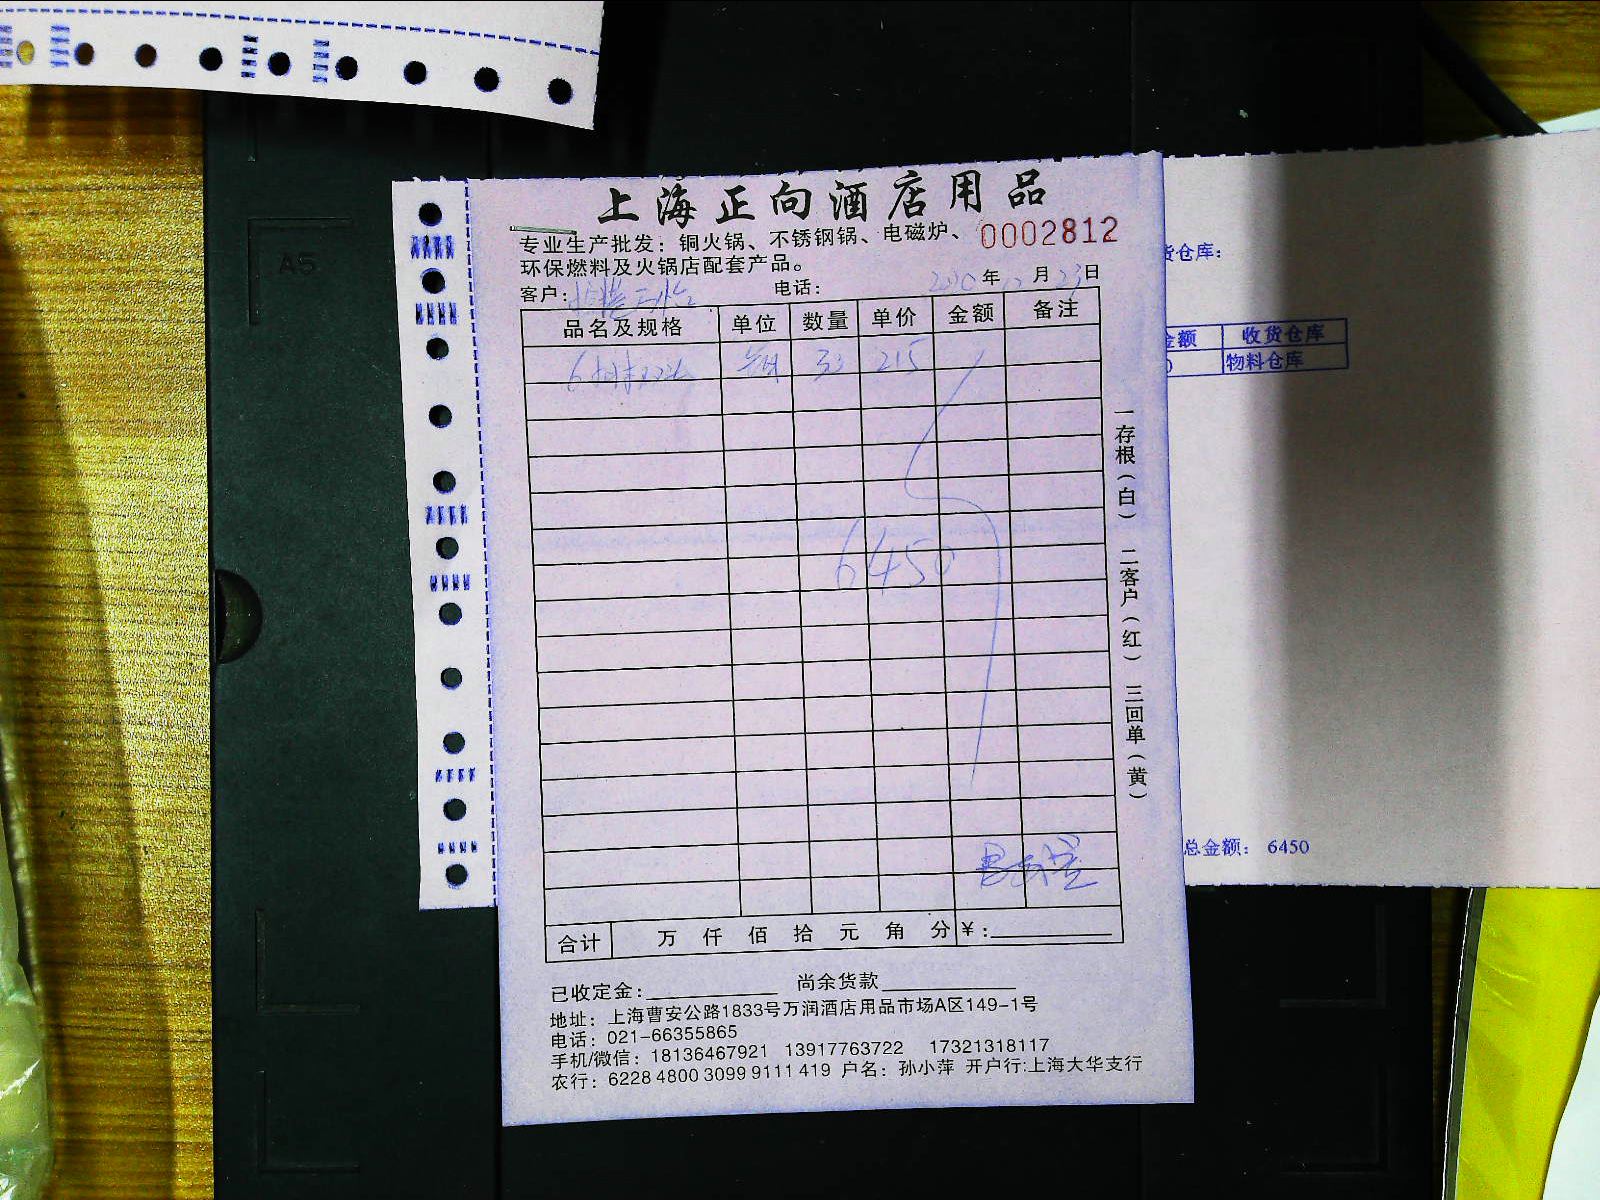 A5
上海正向酒店用品
专业生产批发：铜火锅、不锈钢锅、电磁炉、 0002812
环保燃料及火锅店配套产品。
客户： 电话： 年 月 23日
品名及规格 单位 数量 单价 金额 备注
215
6450
合计 万 仟 佰 拾 元 角 分 ¥：
已收定金： 尚余货款
地址：上海曹安公路1833号万润酒店用品市场A区149-1号
电话：021-66355865
手机/微信：18136467921 13917763722 17321318117
农行：6228 4800 3099 9111 419 户名：孙小萍 开户行:上海大华支行
一存根（白） 二客户（红） 三回单（黄）
货仓库：
金额 收货仓库
0 物料仓库
总金额： 6450